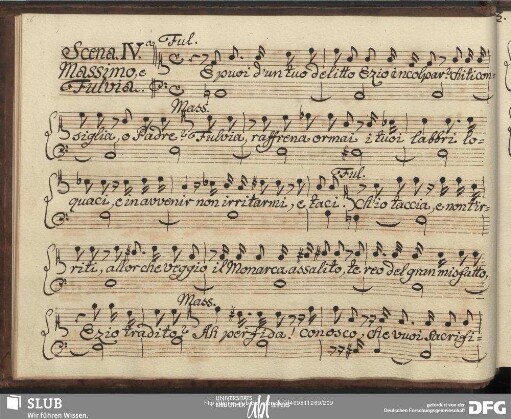 Scena. IV.a Ful.
Massimo, e
Fulvia.
E puoi d'un tuo delitto Ezio incolpar? Chi ti con=
Mass.
siglia, o Padre? Fulvia, raffrena ormai i tuoi labbri lo=
Ful.
quaci, e in avvenir non irritarmi, e taci. Ch'io taccia, e non t'ir=
riti, allor che veggio il Monarca assalito, te reo del gran misfatto,
Mass.
Ezio tradito? Ah perfida! conosco, che vuoi sacrifi=
SLUB
Wir führen Wissen.
UNIVERSITÄTS
BIBLIOTHEK
gefördert von der
Deutschen Forschungsgemeinschaft
DFG